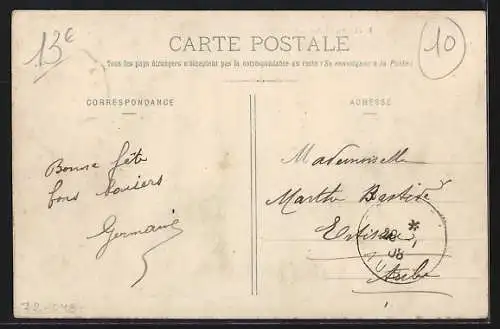 13€
10
CARTE POSTALE
Tous les pays étrangers n'acceptent pas la correspondance au recto (Se renseigner à la Poste)
CORRESPONDANCE
ADRESSE
Bonne fête
bons baisers
Germaine
Mademoiselle
Marthe Bastide
Aube
08